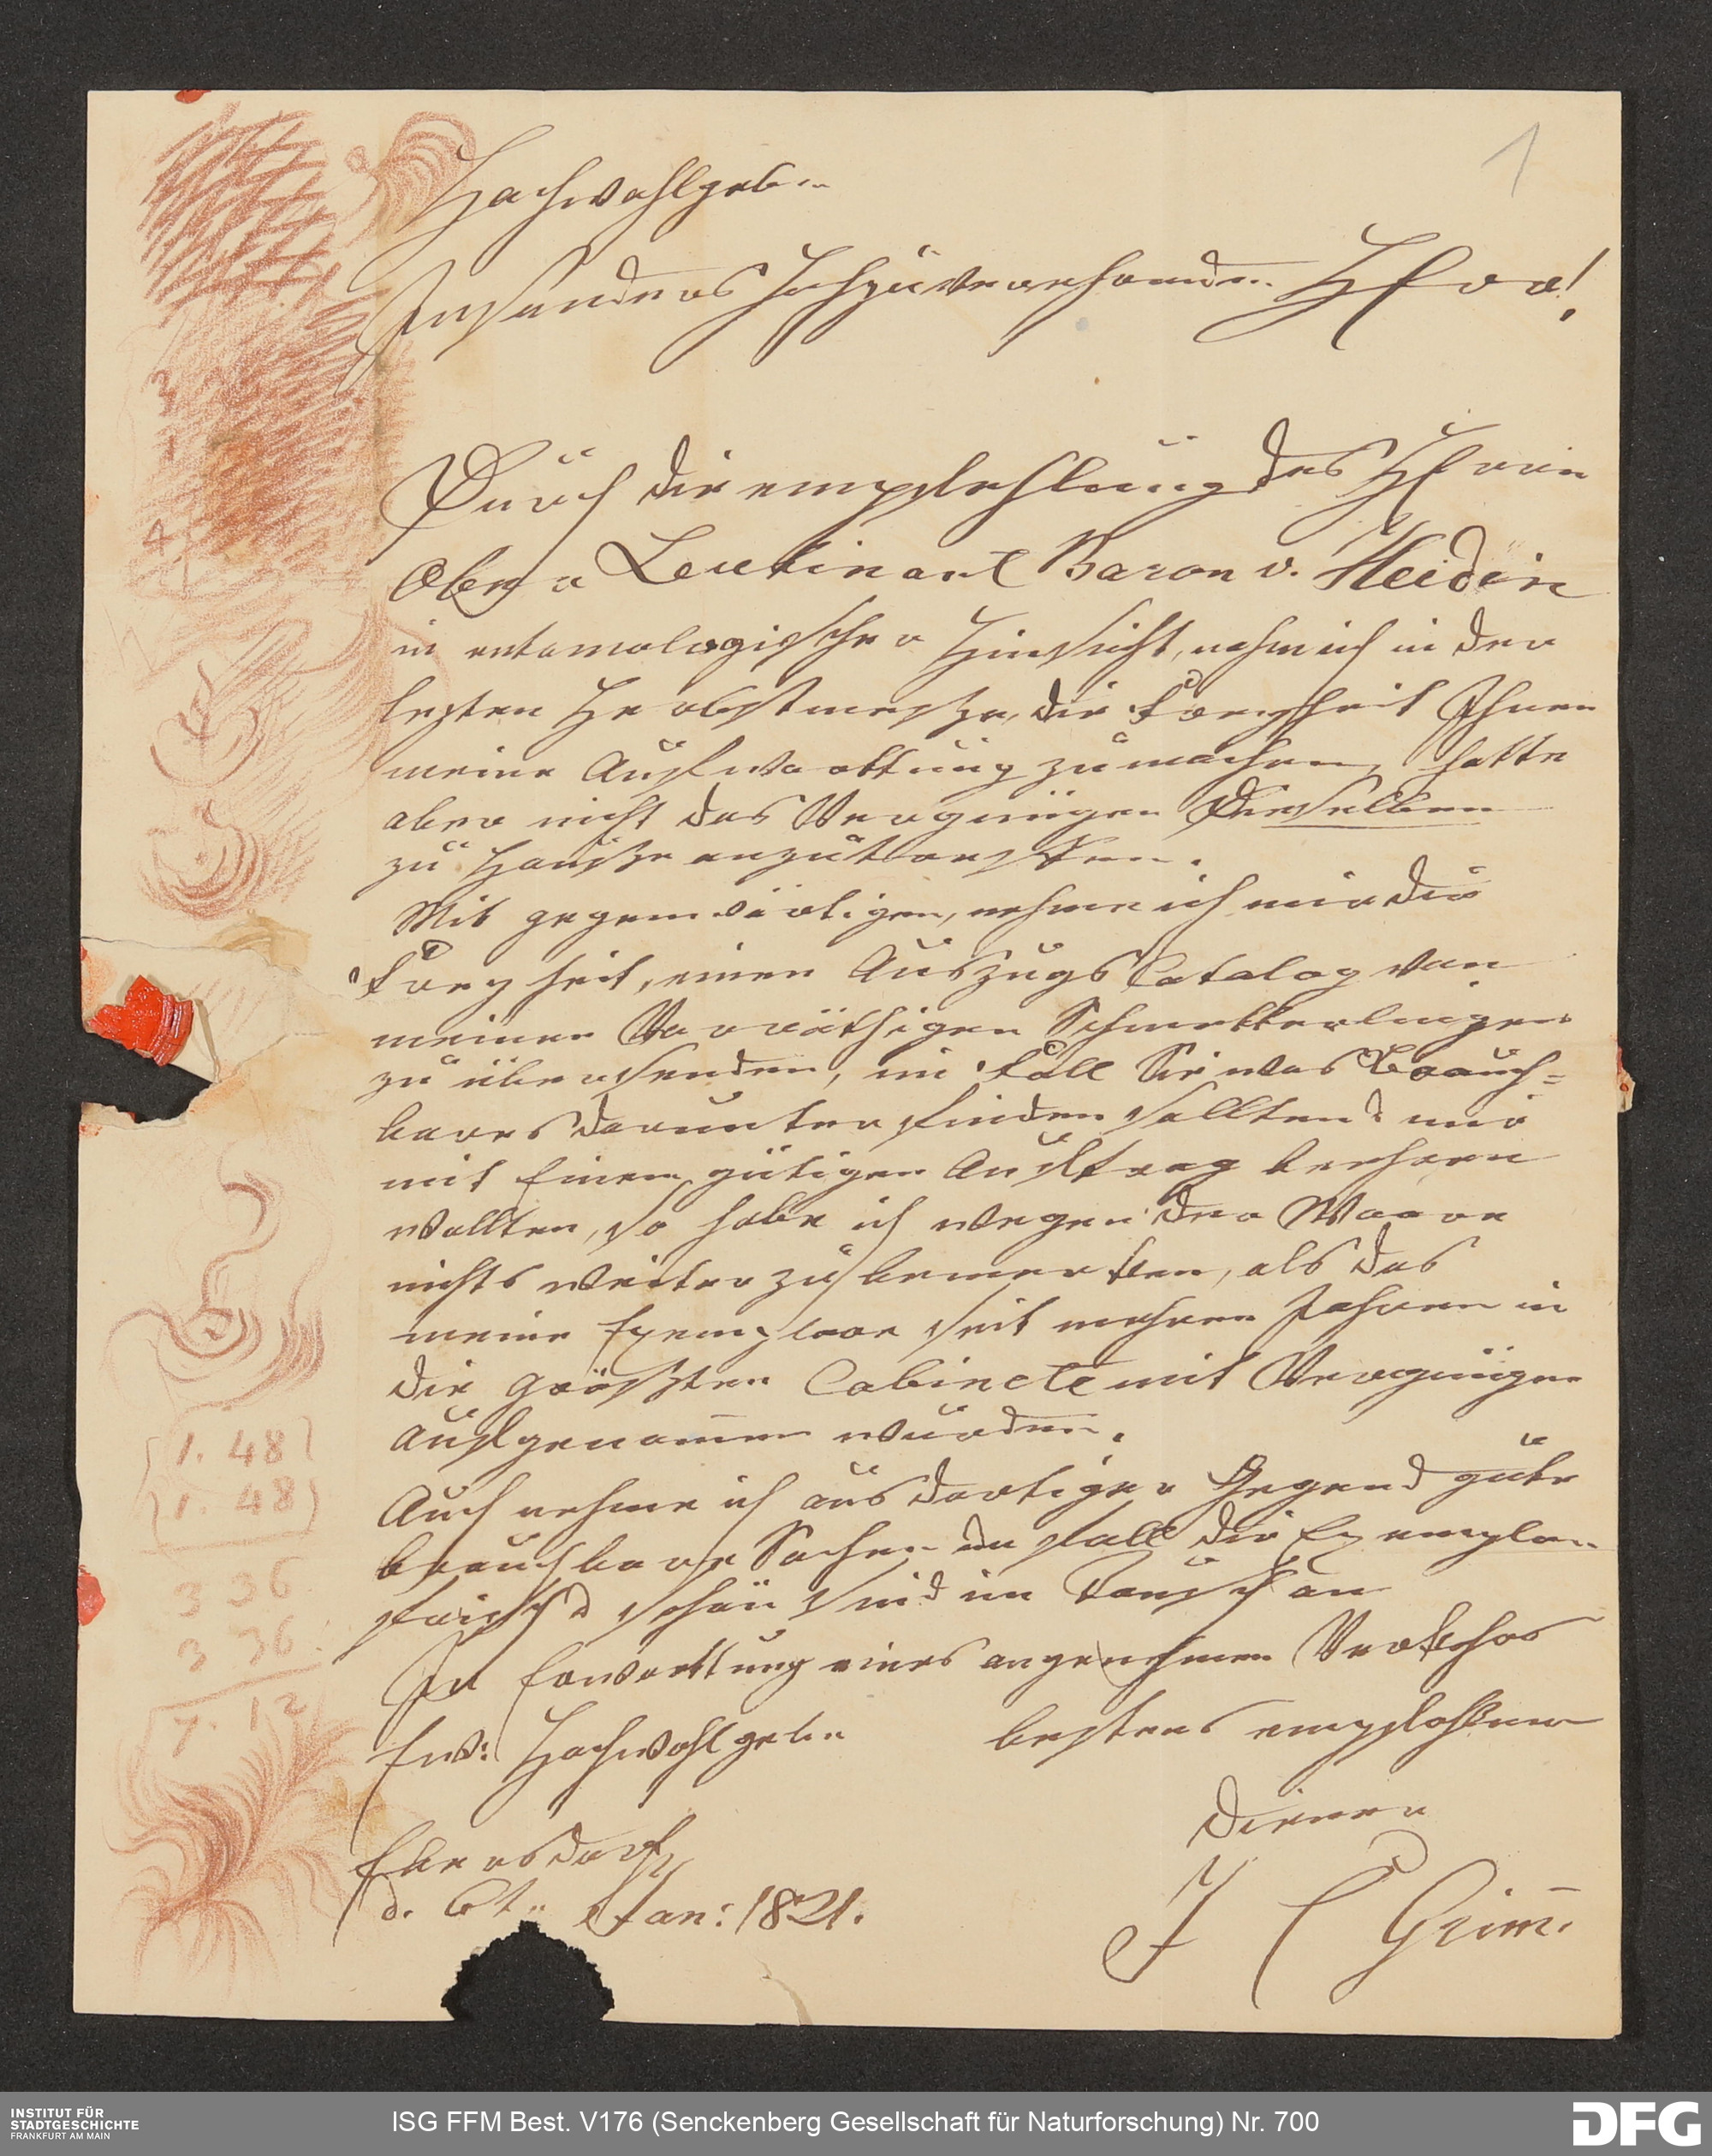 1
Hochwohlgeb.
Insonders Hochzuverehrender Herr!
Durch die empfehlung des Herrn
Ober Leutinant Baron v. Heiden
in entomologischer Hinsicht, nahm ich in der
lezten Herbstmesze, die Freyheit Ihnen
meine Aufwarttung zu machen, hatte
aber nicht das Vergnügen Dieselben
zu Hausze anzutreffen.
Mit gegenwärtigen, nehme ich mir die
Freyheit, einen Auszugs Catalog von
meinen Vorräthigen Schmetterlingen
zu übersenden, im Fall Sie was Brauch=
bares darunter finden sollten & mir
mit Einem gütigen Auftrag beehren
wollten, so habe ich wegen der Waare
nichts weiter zu bemerken, als das
meine Exemplare seit mehren Jahren in
die gröszten Cabinete mit Vergnügen
aufgenom̅en wurden.
Auch nehme ich aus dortiger Gegend gute
brauchbare Sachen im fall die Exemplare
frisch & schön sind im Tausch an
In Erwarttung eines angenehmen Verkehrs
Ew: Hochwohlgeb. bestens empfohlener
Diener
Ebersdorf
d. 6t. Jan: 1821.
J C Grim̅.
3
1
4
1. 48
1. 48
3 36
3 36
7. 12
INSTITUT FÜR
STADTGESCHICHTE
FRANKFURT AM MAIN
ISG FFM Best. V176 (Senckenberg Gesellschaft für Naturforschung) Nr. 700
DFG